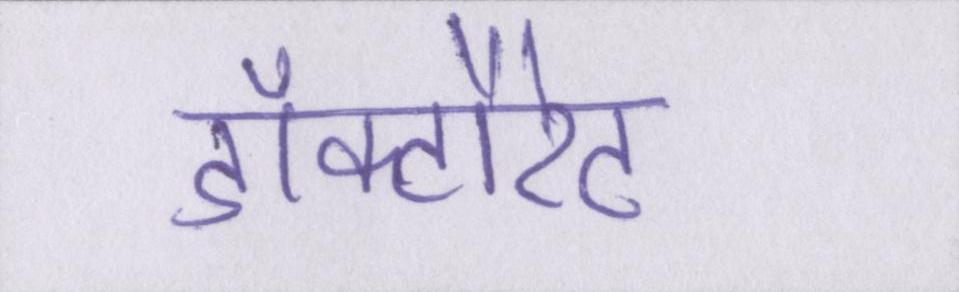 डॉक्टौरेट